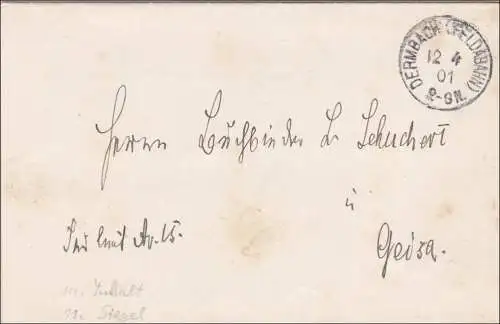 DERMBACH (FELDABAHN)
12 4
01
8-9N.
Herrn Buchbinder L. Schuchert
in
Geisa.
m. Inhalt
m. Siegel